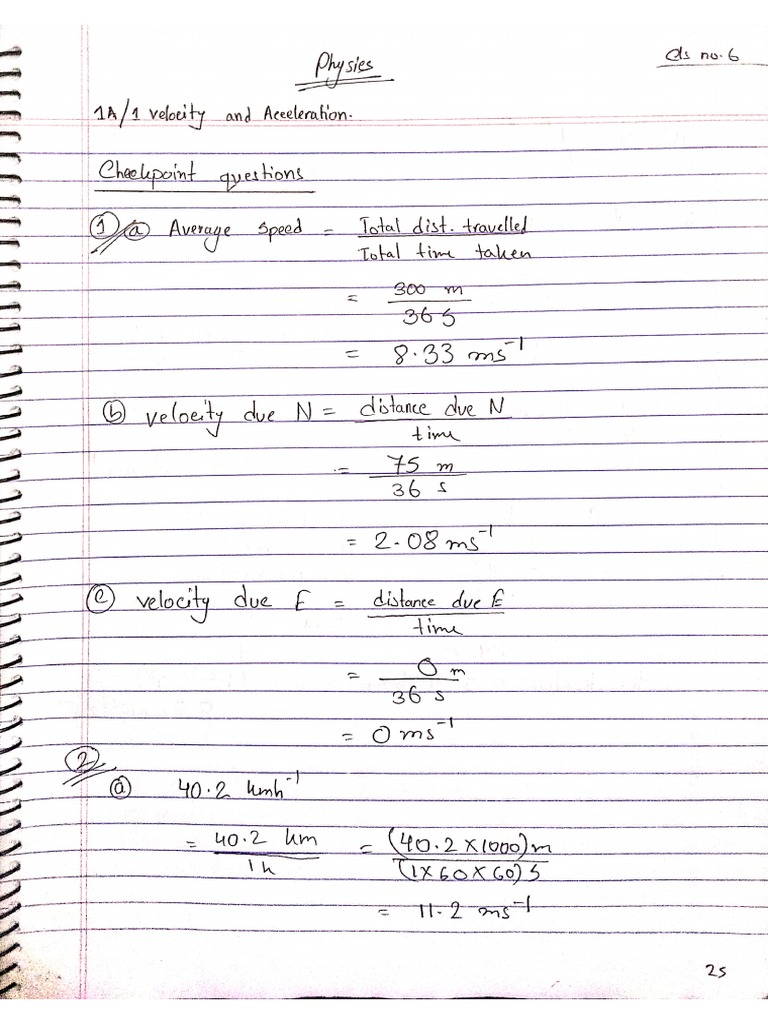 Physics
Cls no. 6
1A/1 velocity and Acceleration.
Checkpoint questions
① ⓐ Average speed = Total dist. travelled
Total time taken
= 300 m
36 s
= 8.33 ms⁻¹
ⓑ velocity due N = distance due N
time
= 75 m
36 s
= 2.08 ms⁻¹
ⓒ velocity due E = distance due E
time
= 0 m
36 s
= 0 ms⁻¹
②
ⓐ 40.2 kmh⁻¹
= 40.2 km = (40.2 x 1000) m
1h (1 x 60 x 60) s
= 11.2 ms⁻¹
25